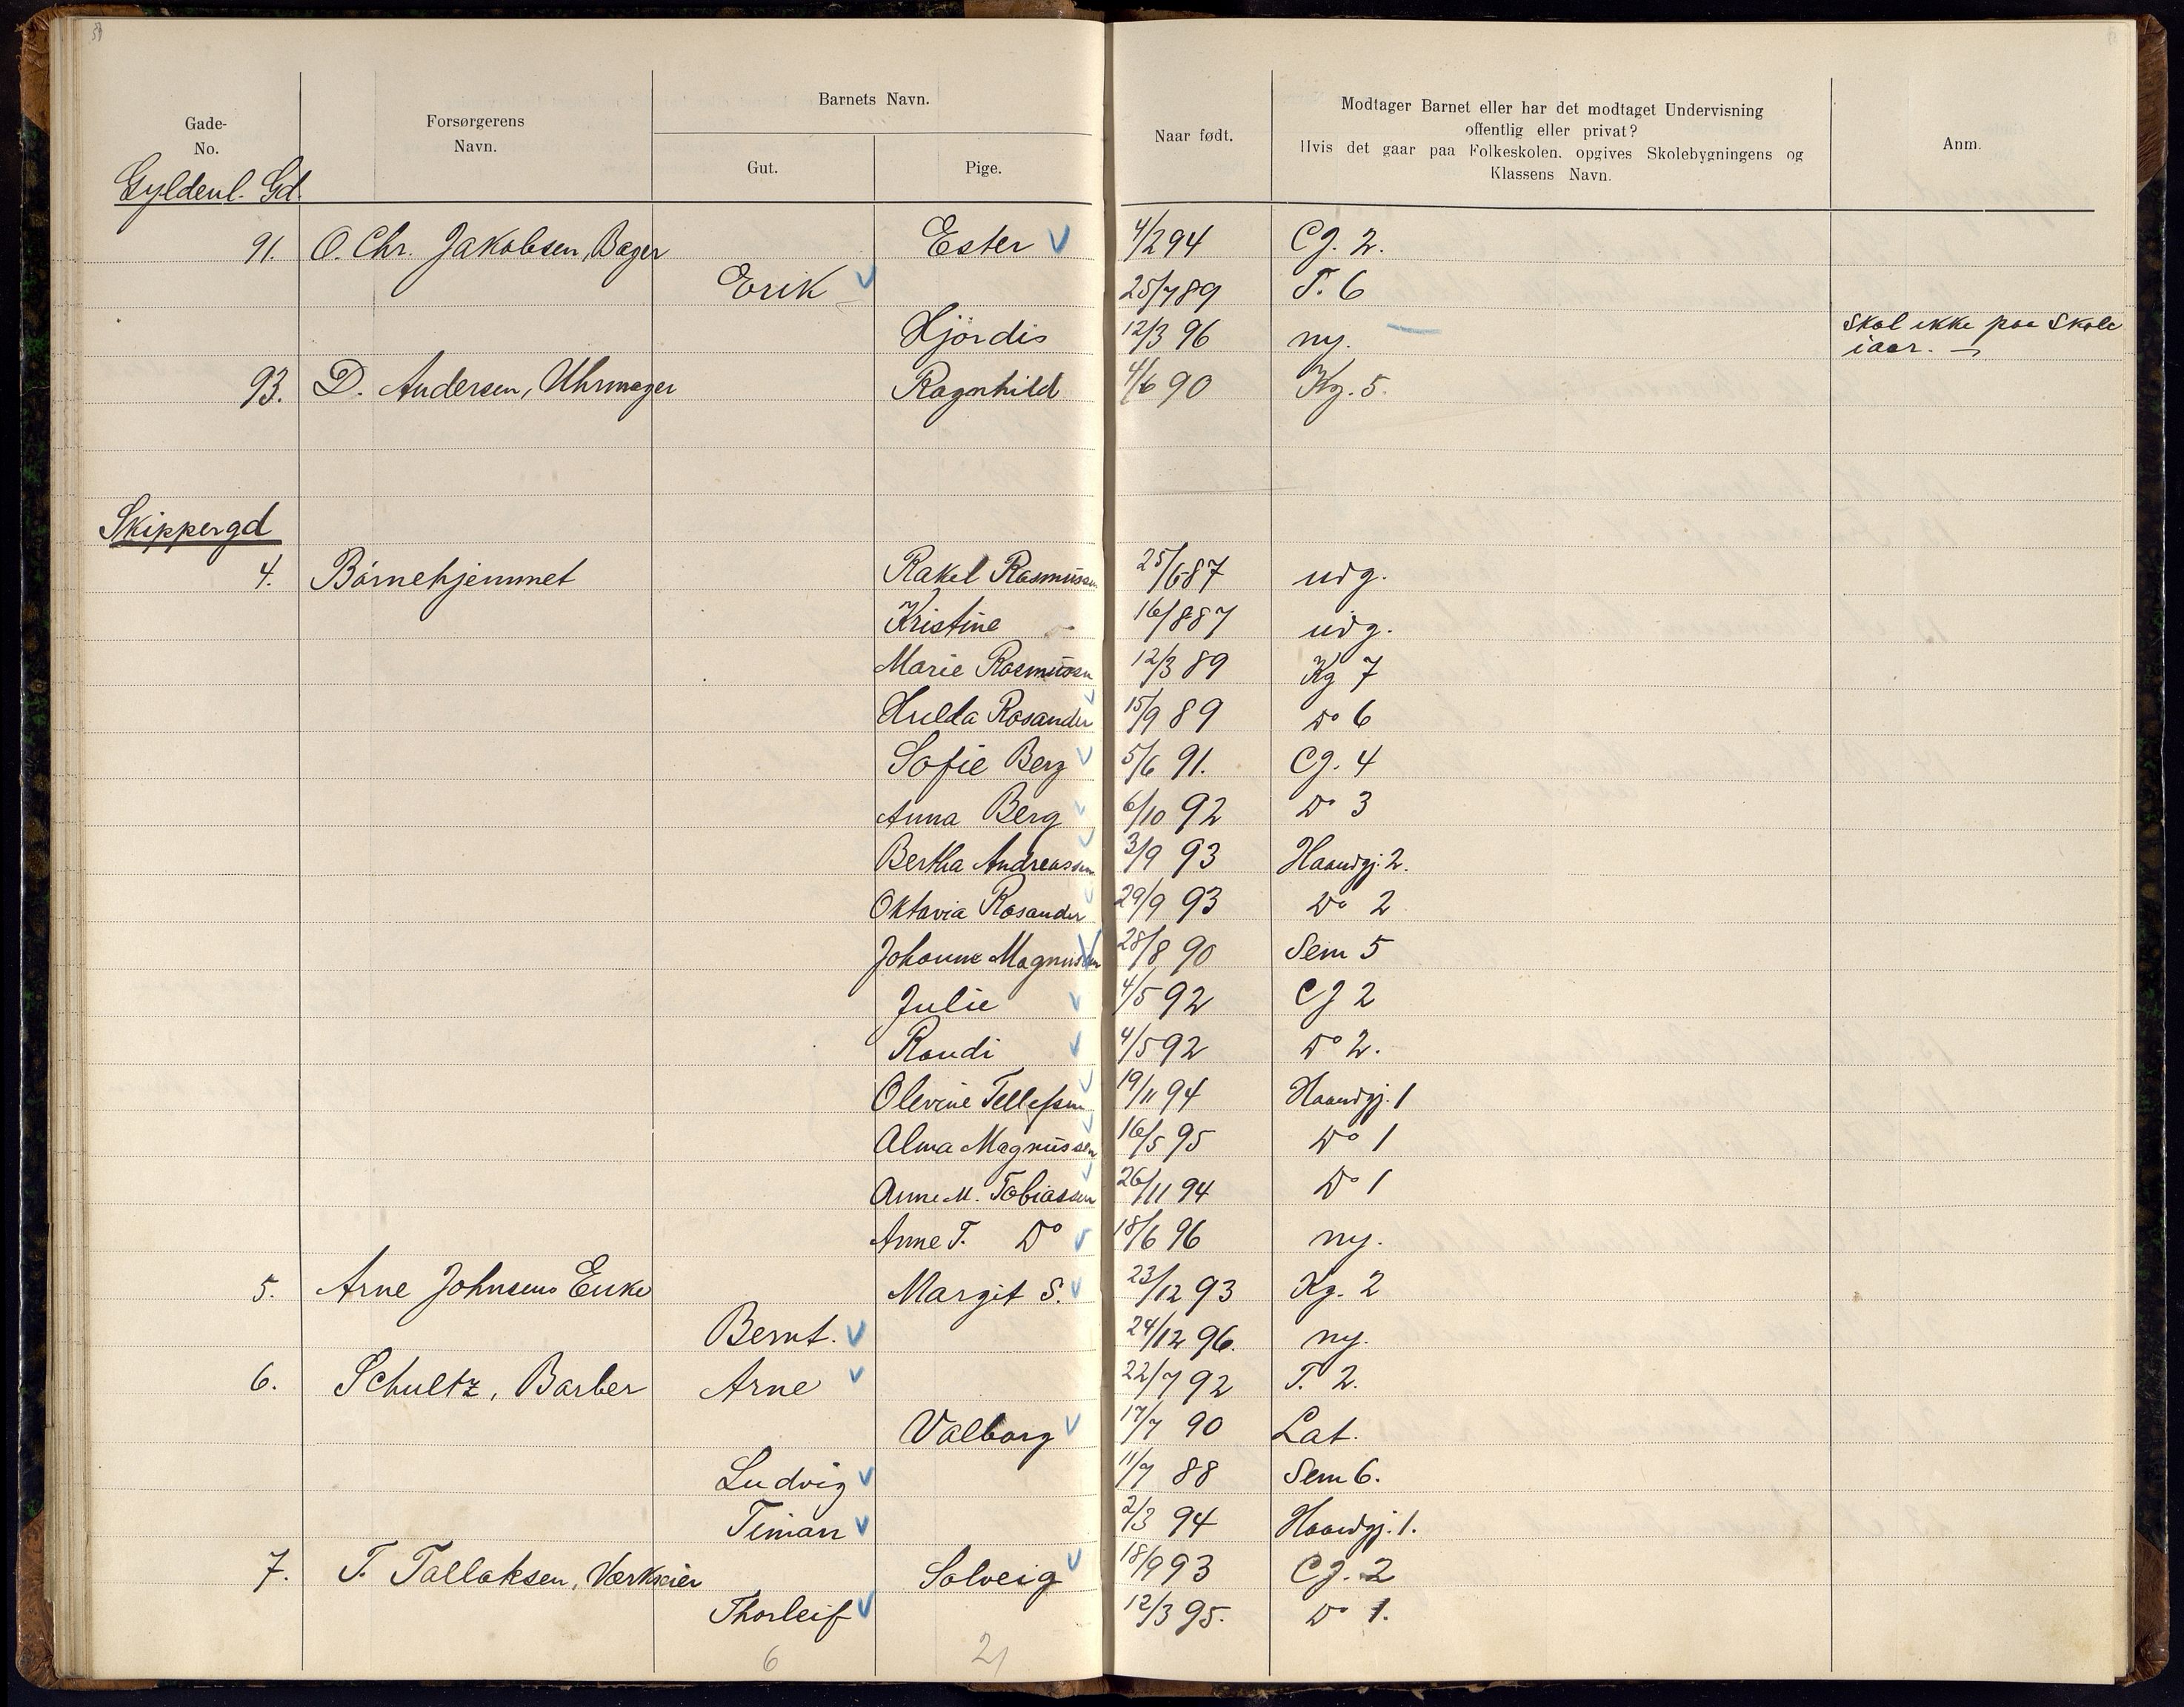 Gade-
No.
Forsørgerens
Navn.
Barnets Navn.
Gut.
Pige.
Naar født.
Modtager Barnet eller har det modtaget Undervisning
offentlig eller privat?
Hvis det gaar paa Folkeskolen. opgives Skolebygningens og
Klassens Navn.
Anm.
Gyldenl. Gd.
91. O. Chr. Jakobsen, Bager Ester 4/2 94 Cg. 2.
Erik 25/7 89 T. 6
Hjördis 12/3 96 ny. Skal ikke paa Skole
iaar.
93. D. Andersen, Uhrmager Ragnhild 4/6 90 Kg. 5.
Skippergd
4. Børnehjemmet Rakel Rasmussen 25/6 87 udg.
Kristine 16/8 87 udg.
Marie Rasmussen 12/3 89 Kg 7
Hulda Rosander 15/9 89 Do 6
Sofie Berg 5/6 91. Cg. 4
Anna Berg 6/10 92 Do 3
Bertha Andreassen 3/9 93 Haandgj. 2.
Oktavia Rosander 29/9 93 Do 2
Johanne Magnussen 28/8 90 Sem 5
Julie 4/5 92 Cg 2
Randi 4/5 92 Do 2.
Olevine Tellefsen 19/11 94 Haandgj. 1
Alma Magnussen 16/5 95 Do 1
Anne M. Tobiassen 26/11 94 Do 1
Anne T. Do 18/6 96 ny.
5. Arne Johnsens Enke Margit S. 23/12 93 Kg. 2
Bernt. 24/12 96. ny.
6. Schultz, Barber Arne 22/7 92 T. 2.
Valborg 17/7 90 Lat.
Ludvig 11/7 88 Sem 6.
Timan 2/3 94 Haandgj. 1.
7. T. Tallaksen, Værkseier Solveig 18/9 93 Cg. 2
Thorleif 12/3 95. Do 1.
6 21